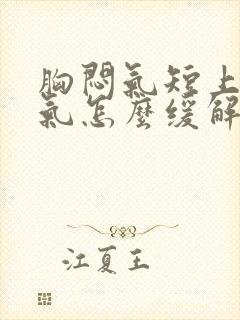 胸悶氣短上
氣怎麼緩解
江夏王